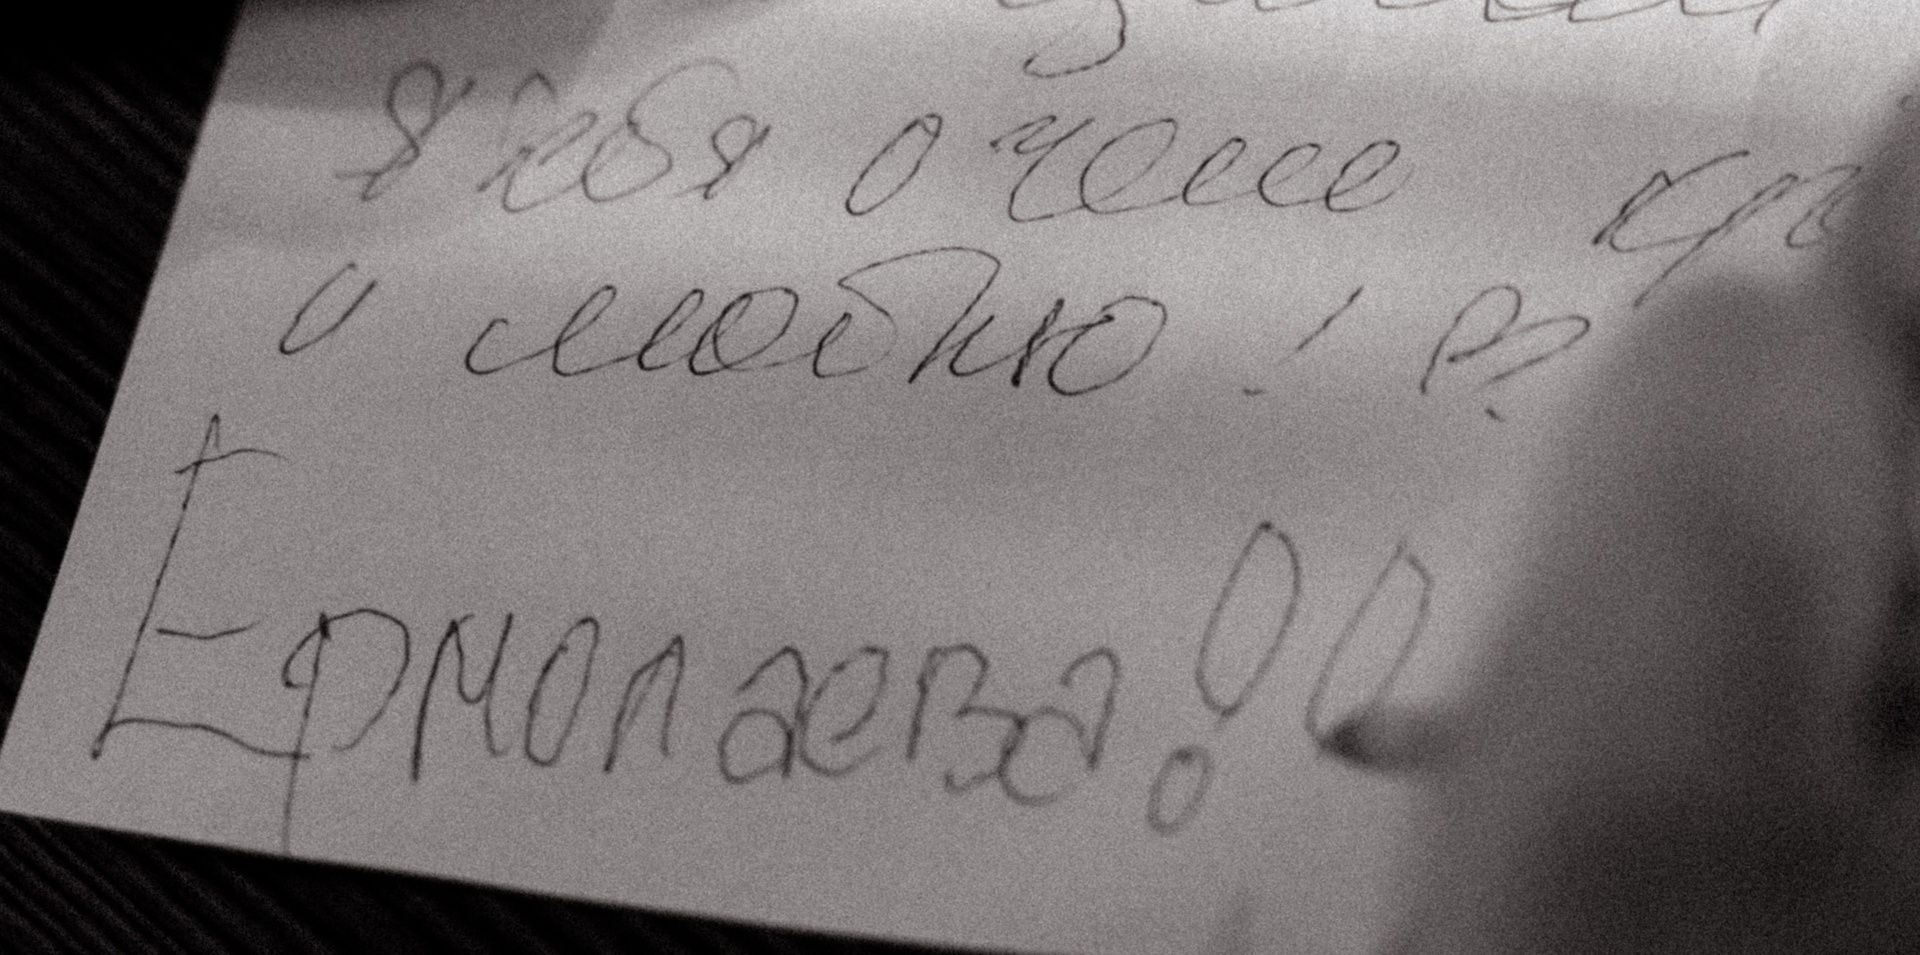 я тебя очень
и люблю!
Ермолаева!!